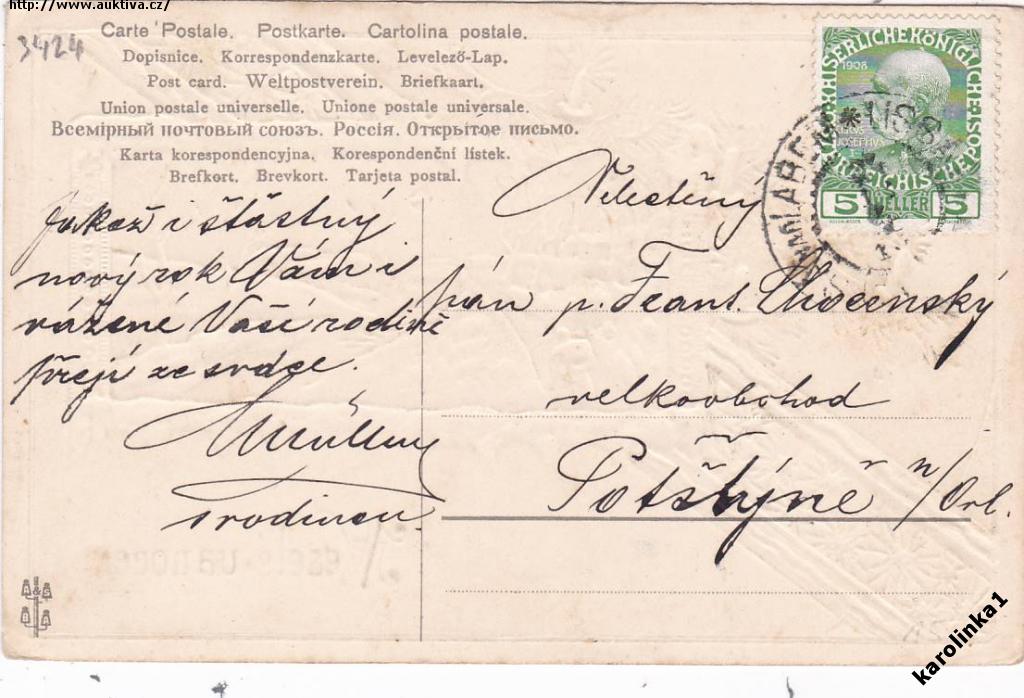 http://www.auktiva.cz/
3424
Carte Postale. Postkarte. Cartolina postale.
Dopisnice. Korrespondenzkarte. Levelező-Lap.
Post card. Weltpostverein. Briefkaart.
Union postale universelle. Unione postale universale.
Всемірный почтовый союзъ. Россія. Открытое письмо.
Karta korespondencyjna. Korespondenční lístek.
Brefkort. Brevkort. Tarjeta postal.
Jakož i štástný
nový rok Vám i
vážené Vaší rodině
přeji ze srdce.
s rodinou
Velectěný
pán p. Frant.
velkoobchod
Potštýně n/Orl.
1908
5 HELLER 5
LISSA
karolinka1